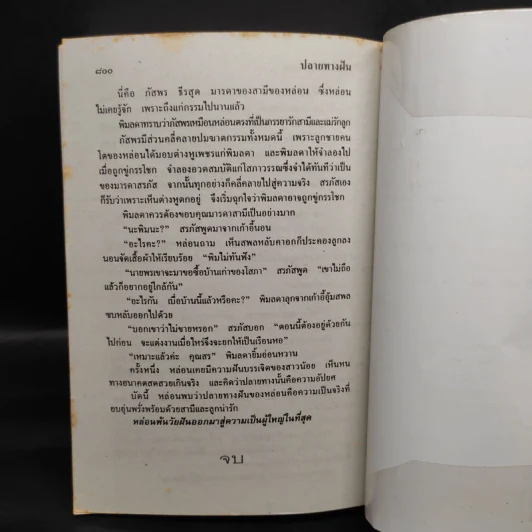 ๘๐๐ ปลายทางฝัน
นี่คือ ภัสพร ธีรสุต มารดาของสามีของหล่อน ซึ่งหล่อน
ไม่เคยรู้จัก เพราะถึงแก่กรรมไปนานแล้ว
พิมลดาทราบว่าภัสพรเหมือนหล่อนตรงที่เป็นภรรยารักสามีและแม่รักลูก
ภัสพรมีส่วนคลี่คลายปมฆาตกรรมทั้งหมดนี้ เพราะลูกชายคน
โตของหล่อนได้มอบต่างหูเพชรแก่พิมลดา และพิมลดาให้จำลองไป
เมื่อถูกขู่กรรโชก จำลองอวดสมบัติแก่โสภาวรรณซึ่งจำได้ทันทีว่าเป็น
ของมารดาสรภัส จากนั้นทุกอย่างก็คลี่คลายไปสู่ความจริง สรภัสเอง
ก็รับว่าเพราะเห็นต่างหูตกอยู่ จึงเริ่มฉุกใจว่าพิมลดาอาจถูกขู่กรรโชก
พิมลดาควรต้องขอบคุณมารดาสามีเป็นอย่างมาก
“นะพิมนะ?” สรภัสพูดมาจากเก้าอี้นอน
“อะไรคะ?” หล่อนถาม เห็นสพลหลับคาอกก็ประคองลูกลง
นอนจัดเสื้อผ้าให้เรียบร้อย “พิมไม่ทันฟัง”
“นายพรเขาจะมาขอซื้อบ้านเก่าของโสภา” สรภัสพูด “เขาไม่ถือ
แล้วก็อยากอยู่ใกล้กัน”
“อะไรกัน เมื่อบ้านนี้แล้วหรือคะ?” พิมลดาลุกจากเก้าอี้อุ้มสพล
ซบหลับออกไปด้วย
“บอกเขาว่าไม่ขายหรอก” สรภัสบอก “ตอนนี้ต้องอยู่ด้วยกัน
ไปก่อน จะแต่งงานเมื่อไหร่จึงจะยกให้เป็นเรือนหอ”
“เหมาะแล้วค่ะ คุณสร” พิมลดายิ้มอ่อนหวาน
ครั้งหนึ่ง หล่อนเคยมีความฝันบรรเจิดของสาวน้อย เห็นหน
ทางอนาคตสดสวยเกินจริง และคิดว่าปลายทางนั้นคือความอัปยศ
บัดนี้ หล่อนพบว่าปลายทางฝันของหล่อนคือความเป็นจริงที่
อบอุ่นพรั่งพร้อมด้วยสามีและลูกน่ารัก
หล่อนพ้นวัยฝันออกมาสู่ความเป็นผู้ใหญ่ในที่สุด
จบ